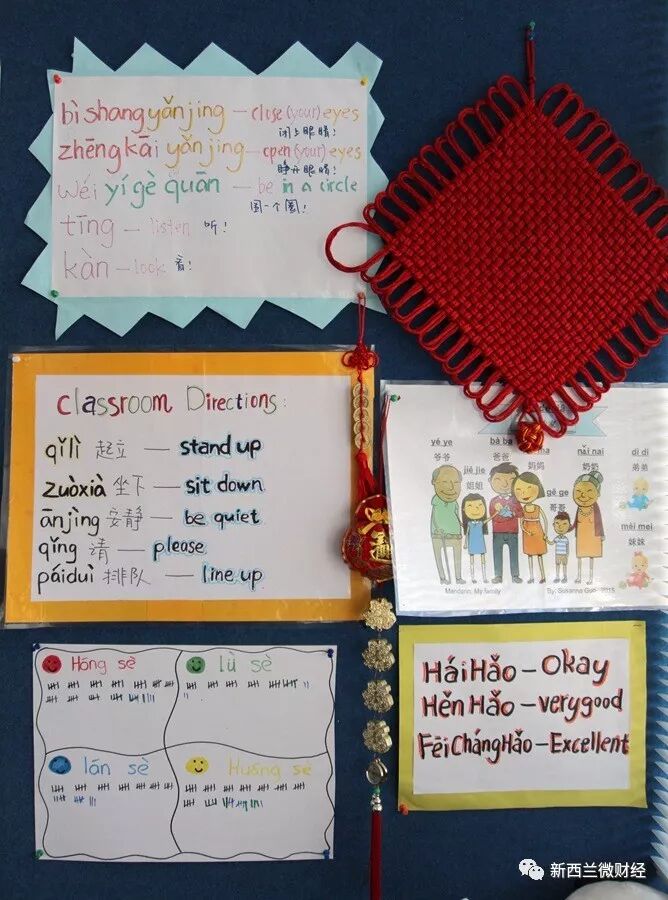 bì shang yǎn jīng — close (your) eyes
闭上眼睛!
zhēng kāi yǎn jīng — open (your) eyes
睁开眼睛!
wéi yí gè quān — be in a circle
围一个圈!
tīng — listen 听!
kàn — look 看!
Classroom Directions:
qǐlì 起立 — stand up
zuòxià 坐下 — sit down
ānjìng 安静 — be quiet
qǐng 请 — please
páiduì 排队 — line up
yé ye
爷爷
bà ba
爸爸
ma
妈妈
nǎi nai
奶奶
dì di
弟弟
jiě jie
姐姐
gē ge
哥哥
mèi mei
妹妹
Mandarin, My family
By: Susanna Guo 2015
Hóng sè
lǜ sè
lán sè
Huáng sè
Hái Hǎo – Okay
Hěn Hǎo – very good
Fēi Cháng Hǎo – Excellent
新西兰微财经